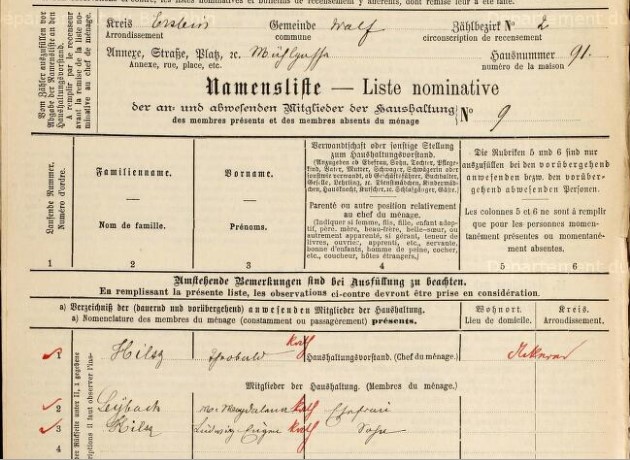 Kreis Erstein Gemeinde Walf Zählbezirk No 2
Arrondissement commune circonscription de recensement
Annexe, Straße, Platz, ꝛc. Mühlgasse Hausnummer 91.
Annexe, rue, place, etc. numéro de la maison
Vom Zähler auszufüllen vor Abgabe der Namensliste an den Haushaltungsvorstand.
A remplir par le recenseur avant la remise de la liste nominative au chef de ménage.
Namensliste — Liste nominative
der an- und abwesenden Mitglieder der Haushaltung No 9
des membres présents et des membres absents du ménage
Laufende Nummer.
Numéro d'ordre.
1
Familienname.
—
Nom de famille.
2
Vorname.
—
Prénoms.
3
Verwandtschaft oder sonstige Stellung
zum Haushaltungsvorstand.
(Anzugeben ob Ehefrau, Sohn, Tochter, Pflegekind, Vater, Mutter, Schwager, Schwägerin oder
sonstwie verwandt, ob Geschäftsführer, Buchhalter,
Geselle, Lehrling, ꝛc. Dienstmädchen, Kindermädchen, Hausknecht, Kutscher, ꝛc. Schlafgänger, Gäste.)
Parenté ou autre position relativement
au chef du ménage.
(Indiquer si femme, fils, fille, enfant adoptif, père, mère, beau-frère, belle-sœur, ou
autrement apparenté, si gérant, teneur de
livres, ouvrier, apprenti, etc., servante,
bonne d'enfants, homme de peine, cocher,
etc., coucheur, hôtes étrangers.)
4
Die Rubriken 5 und 6 sind nur
auszufüllen bei den vorübergehend
anwesenden bezw. den vorübergehend abwesenden Personen.
Les colonnes 5 et 6 ne sont à remplir
que pour les personnes momentanément présentes ou momentanément absentes.
5 6
Umstehende Bemerkungen sind bei Ausfüllung zu beachten.
En remplissant la présente liste, les observations ci-contre devront être prise en considération.
a) Verzeichniß der (dauernd und vorübergehend) anwesenden Mitglieder der Haushaltung.
a) Nomenclature des membres du ménage (constamment ou passagèrement) présents.
Wohnort.
Lieu de domicile.
Kreis.
Arrondissement.
1 Hilsz Thobald kath Haushaltungsvorstand. (Chef du ménage.)
Mitglieder der Haushaltung. (Membres du ménage.)
2 Leybach M. Magdalena kath Ehefrau
3 Hilsz Ludwig Eugen kath Sohn
4